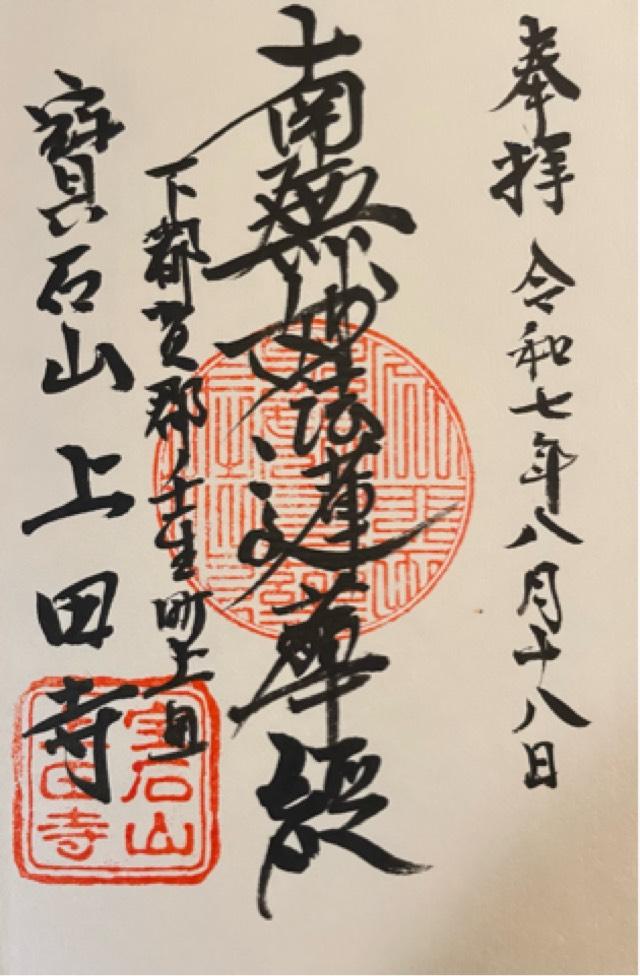 奉拝 令和七年八月十八日
南無妙法蓮華経
下都賀郡壬生町上田
寶石山 上田寺
宝石山
上田寺